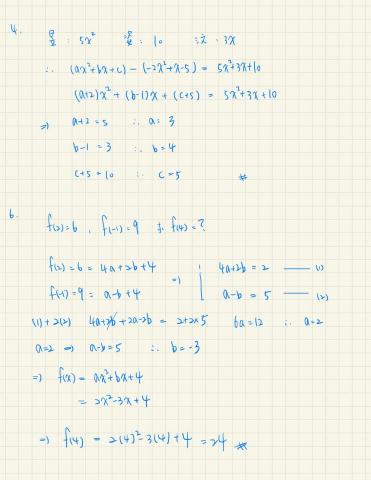 4.
5x² 10 3x
∴ (ax²+bx+c) - (-2x²+x-5) = 5x²+3x+10
(a+2)x² + (b-1)x + (c+5) = 5x²+3x+10
⇒ a+2=5 ∴ a=3
b-1=3 ∴ b=4
c+5=10 ∴ c=5 #
6.
f(2)=6 , f(-1)=9 求 f(4)=?
f(2)=6 = 4a+2b+4 ⇒ 4a+2b=2 —— (1)
f(-1)=9 = a-b+4 a-b=5 —— (2)
(1)+2(2) 4a+2b+2a-2b = 2+2×5 6a=12 ∴ a=2
a=2 ⇒ a-b=5 ∴ b=-3
⇒ f(x) = ax²+bx+4
= 2x²-3x+4
⇒ f(4) = 2(4)²-3(4)+4 = 24 #